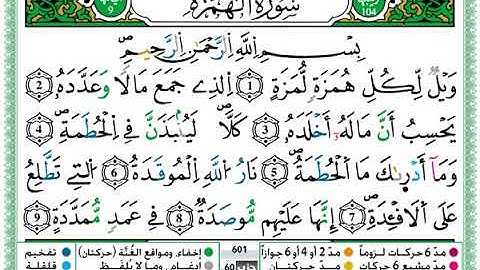 سُورَةُ الهُمَزَة
104
بِسْمِ اللَّهِ الرَّحْمَنِ الرَّحِيمِ
وَيْلٌ لِّكُلِّ هُمَزَةٍ لُّمَزَةٍ ۝1 الَّذِي جَمَعَ مَالًا وَعَدَّدَهُ ۝2
يَحْسِبُ أَنَّ مَالَهُ أَخْلَدَهُ ۝3 كَلَّا لَيُنْبَذَنَّ فِي الْحُطَمَةِ ۝4
وَمَا أَدْرَىكَ مَا الْحُطَمَةُ ۝5 نَارُ اللَّهِ الْمُوقَدَةُ ۝6 الَّتِي تَطَّلِعُ
عَلَى الْأَفْئِدَةِ ۝7 إِنَّهَا عَلَيْهِم مُّوصَدَةٌ ۝8 فِي عَمَدٍ مُّمَدَّدَةٍ ۝9
مدّ 6 حركات لزوماً مدّ 2 أو 4 أو 6 جوازاً 601 إخفاء، ومواقع الغُنَّة (حركتان) تفخيم
مدّ مشبع 6 حركات مدّ حركتان إدغام، وما لا يُلفَظ قلقلة